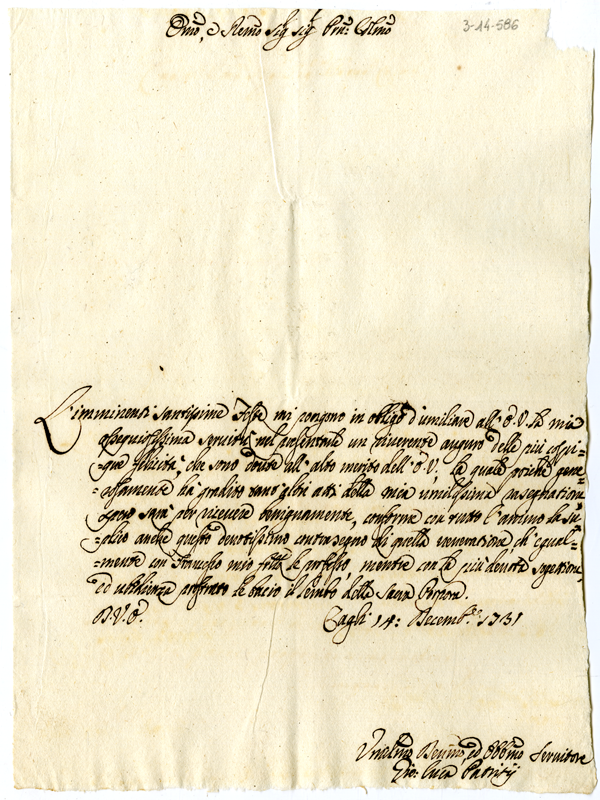 Emō, e Remō Sig. Sig. Prnē. Colmō
3-14-586
L'imminenti Santissime Feste mi pongono in obligo d'umiliare all' E. V. la mia
ossequiosissima servitù nel presentarle un riverente augurio delle più cospi-
-que felicità, che sono dovute all' alto merito dell' E. V., la quale poiche gene-
-rosamente hà gradito tant' altri atti della mia umilissima rasegnazione
spero sarà per ricevere benignamente, conforme con tutto l'animo la su-
-plico anche questo devotissimo contrasegno di quella venerazione, ch' egual-
-mente con Francesco mio fratello le professo, mentre con la più devota sogezione,
ed ubbidienza prostrato le bacio il lembo della Sacra Porpora.
D. V. E. Cagli 14: Decembre 1731
Umilmō Devmō, ed Obbmō Servitore
Gio: Luca